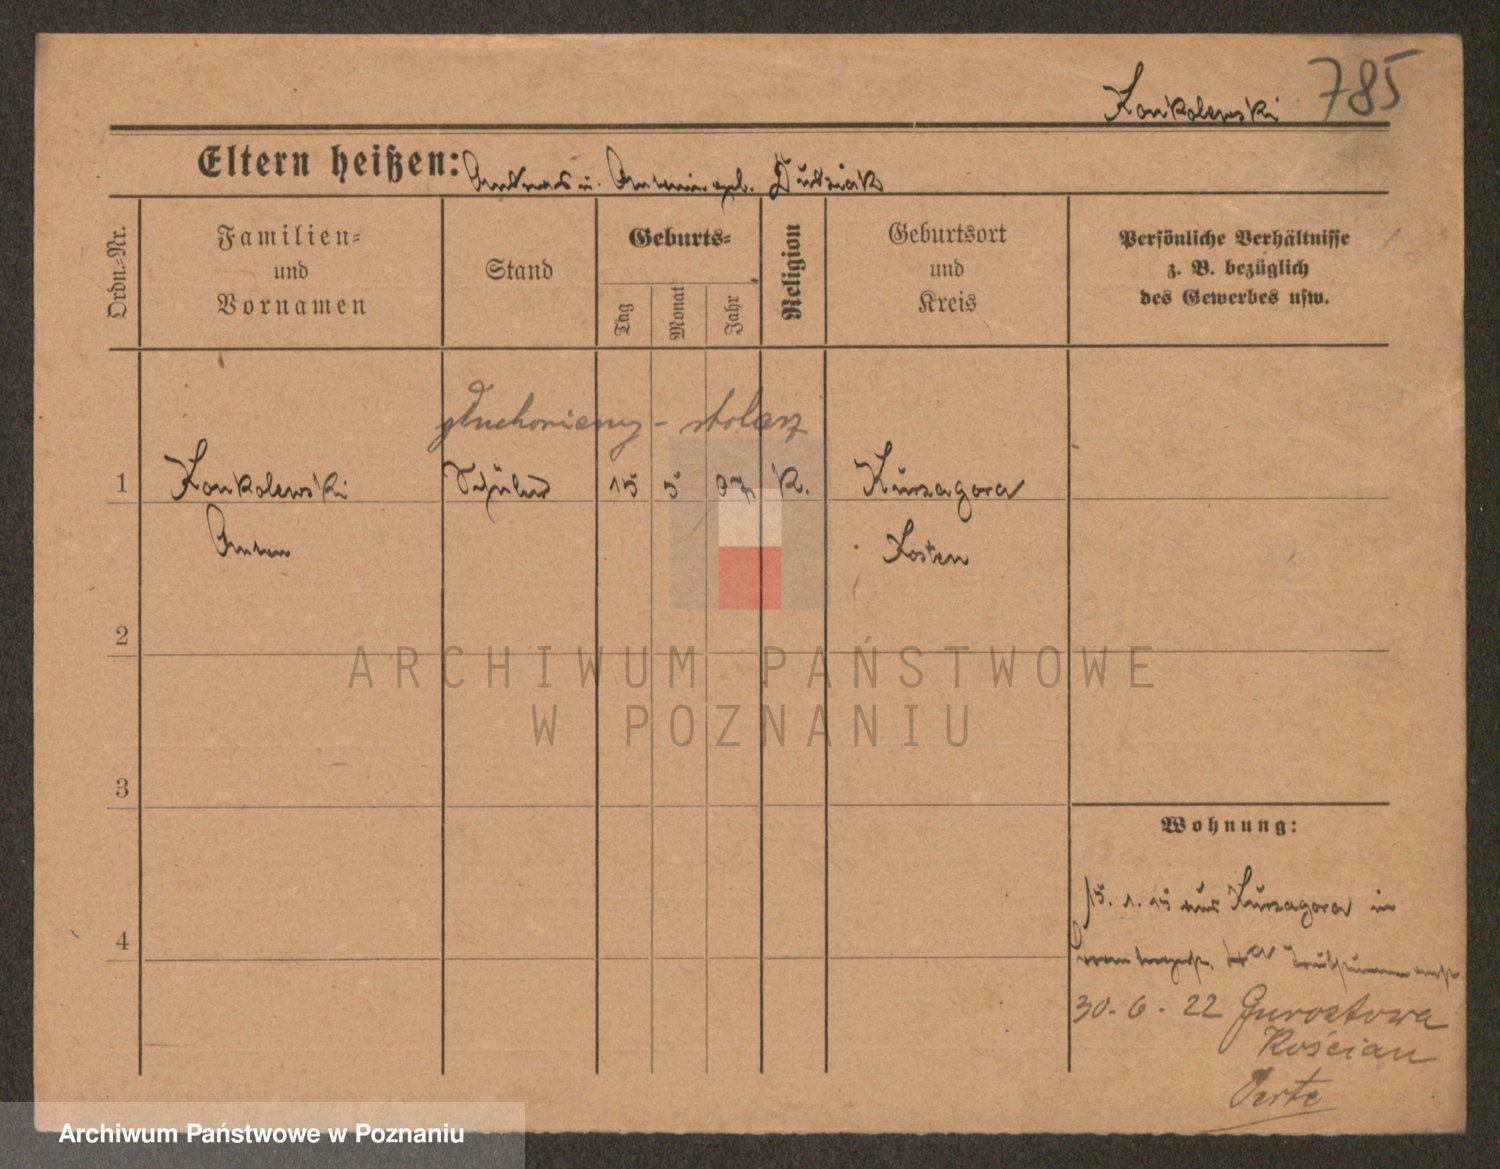 Konkolewski 785
Eltern heißen: Andreas u. Antonie geb. Dudziak
Ordn.-Nr.
Familien-
und
Vornamen
Stand
Geburts-
Tag
Monat
Jahr
Religion
Geburtsort
und
Kreis
Persönliche Verhältnisse
z. B. bezüglich
des Gewerbes usw.
stolarz
1 Konkolewski Schüler 15 5 07 K. Kurzagora
Anton Kosten
2
3
4
Wohnung:
15. 1. 15 aus Kurzagora in
4a
30. 6. 22 Gurostowa
Kościan
Verte
ARCHIWUM PAŃSTWOWE
W POZNANIU
Archiwum Państwowe w Poznaniu